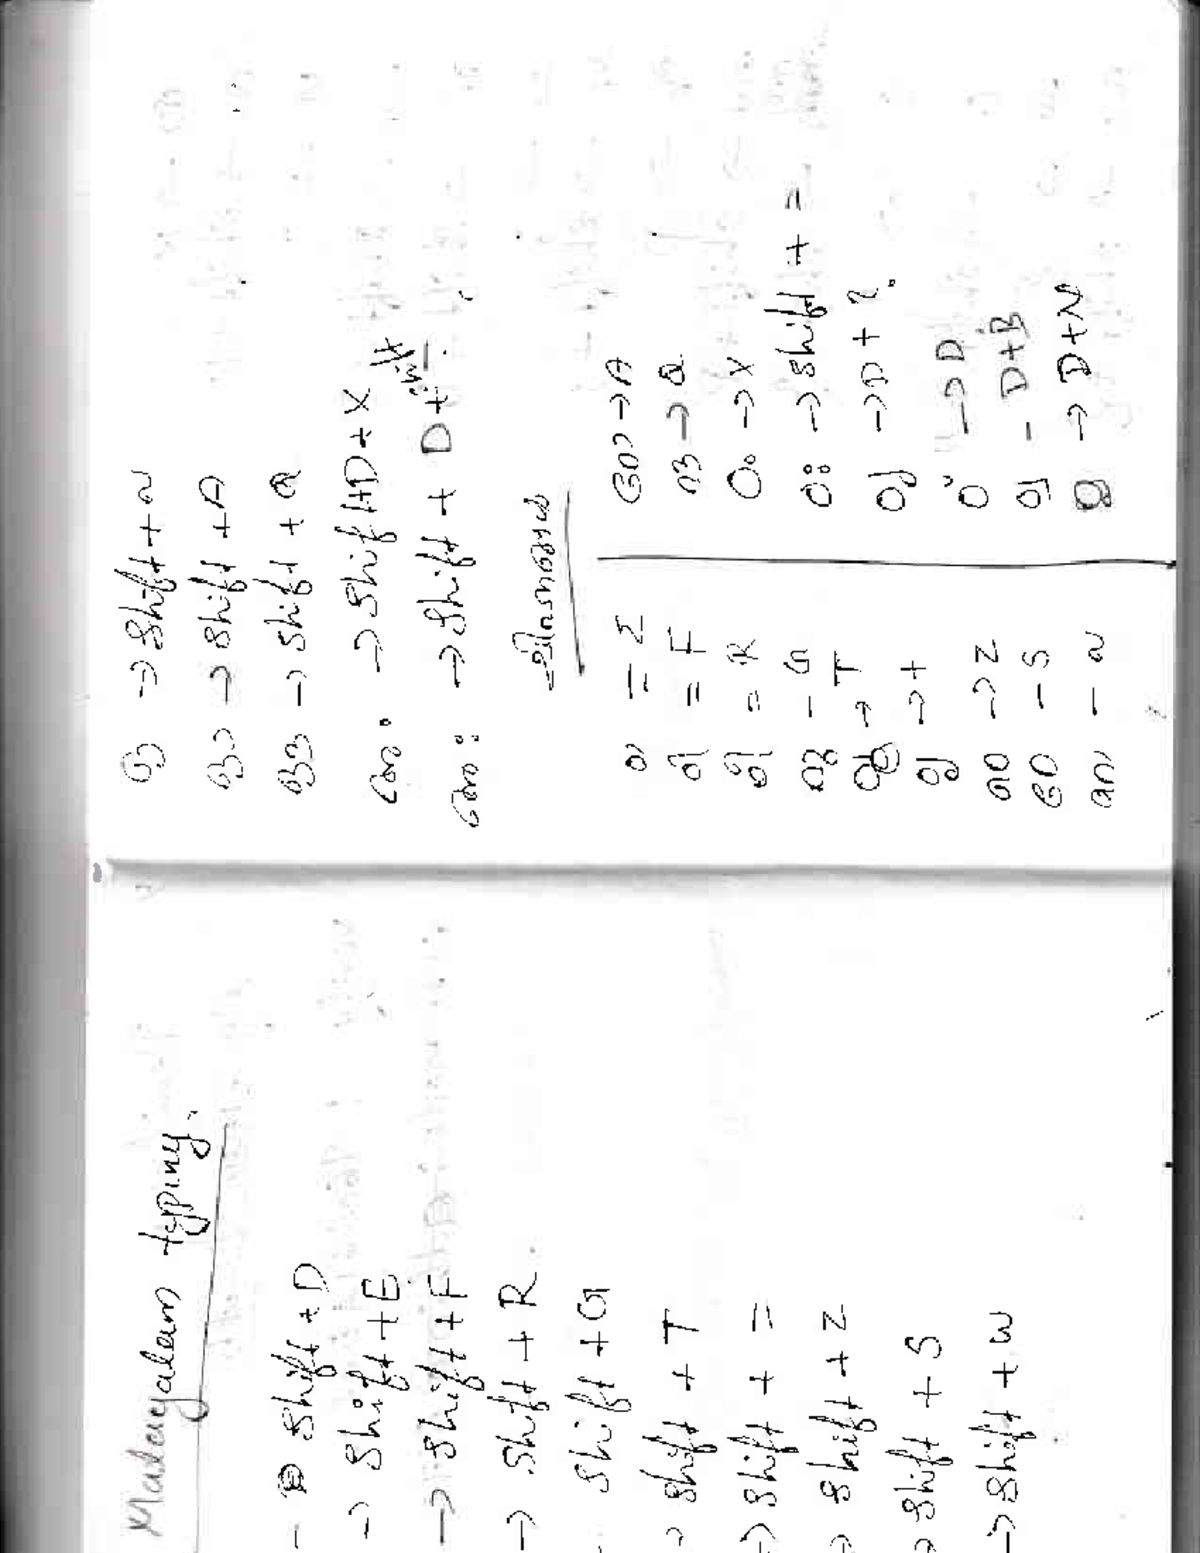 Malayalam typing.
- Shift + D
→ Shift + E
→ Shift + F
→ Shift + R
Shift + G
→ Shift + T
→ Shift + =
→ Shift + Z
→ Shift + S
→ Shift + W
ഒ → Shift + ~
ഓ → Shift + A
ഔ → Shift + Q
അം → Shift + D + X
അഃ → Shift + D + Shift + -
ചിഹ്നങ്ങൾ
ാ = E
ി = F
ീ = R
ു - G
ൂ → T
ൃ → +
െ → Z
േ - S
ൈ - W
ോ → A
ൗ → Q
ം → X
ഃ → Shift + =
്യ → D + ?
് → D
- D + B
→ D + N